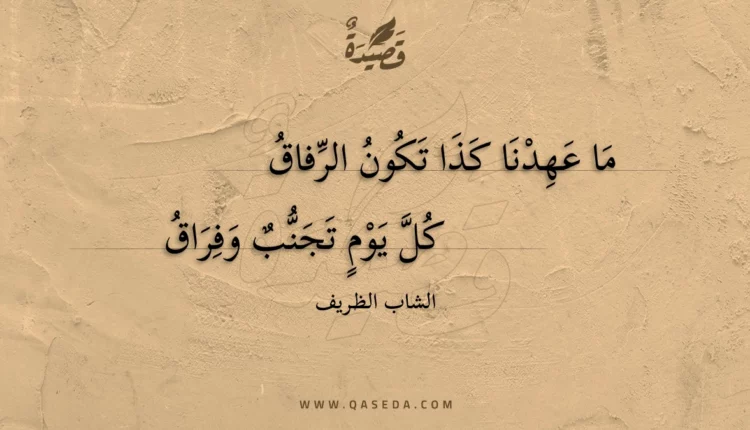 قَصِيدَةٌ
مَا عَهِدْنَا كَذَا تَكُونُ الرِّفاقُ
كُلَّ يَوْمٍ تَجَنُّبٌ وَفِرَاقُ
الشاب الظريف
WWW.QASEDA.COM